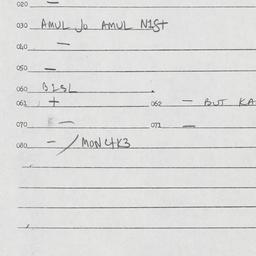 020 —
030 AMUL Jo AMUL NIST
040 —
050 —
060 BISL .
061 + 062 — BUT KA
070 — 071 —
080 — / MON 4K3